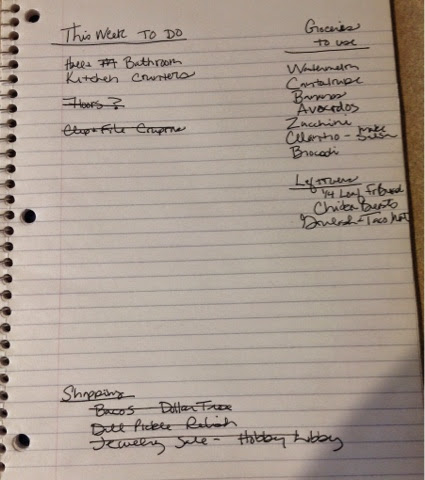 This Week To Do
Bathroom
Kitchen Counters
Floors ?
Clip & File Coupons
Groceries
to use
Watermelon
Cantalope
Bananas
Avocados
Zucchini
Cilantro - make
Brocoli
Leftovers
1/4 Loaf Fr Bread
Chicken Breasts
- Taco Meat
Shopping
Bacos Dollar Tree
Dill Pickle Relish
Jewelry Sale - Hobby Lobby